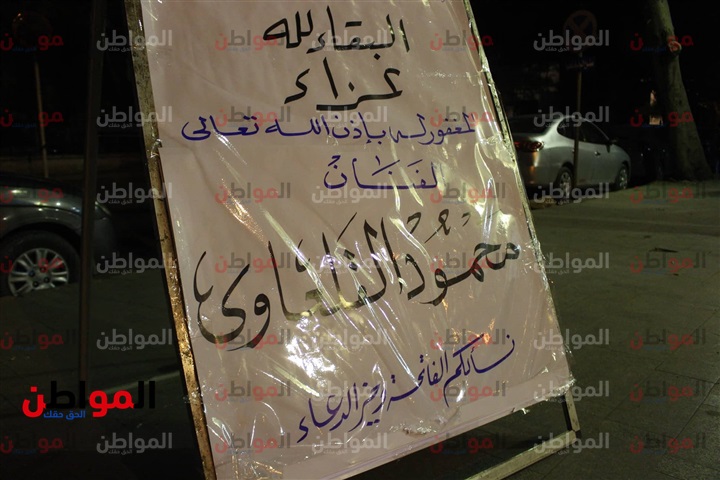 البقاء لله
عزاء
المغفور له بإذن الله تعالى
الفنان
محمود القلعاوى
نسألكم الفاتحة وخير الدعاء
المواطن
الحق حقك